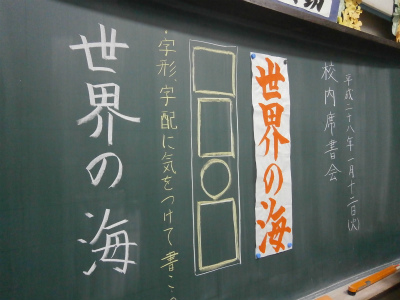 平成二十八年一月十二日(火)
校内席書会
世界の海
・字形、字配に気をつけて書こう。
世界の海